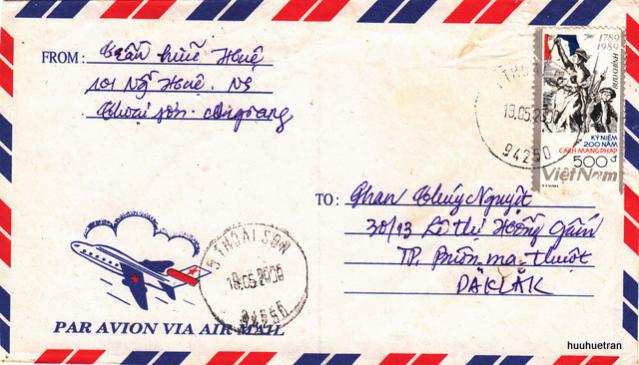 FROM: Trần hữu Huệ
101 Ng̃ Huệ. NS
Thoại Sơn - Angiang
1789
1989
KỶ NIỆM
200 NĂM
CÁCH MẠNG PHÁP
500đ
Việt Nam
THOẠI
19.05.20
94250
TO: Phan Thúy Nguyệt
30/13 Lê Thị Hồng Gấm
TP. Buôn ma thuột
DAKLAK
5 THOẠI SƠN
19.05.2008
PAR AVION VIA AIR MAIL
huuhuetran